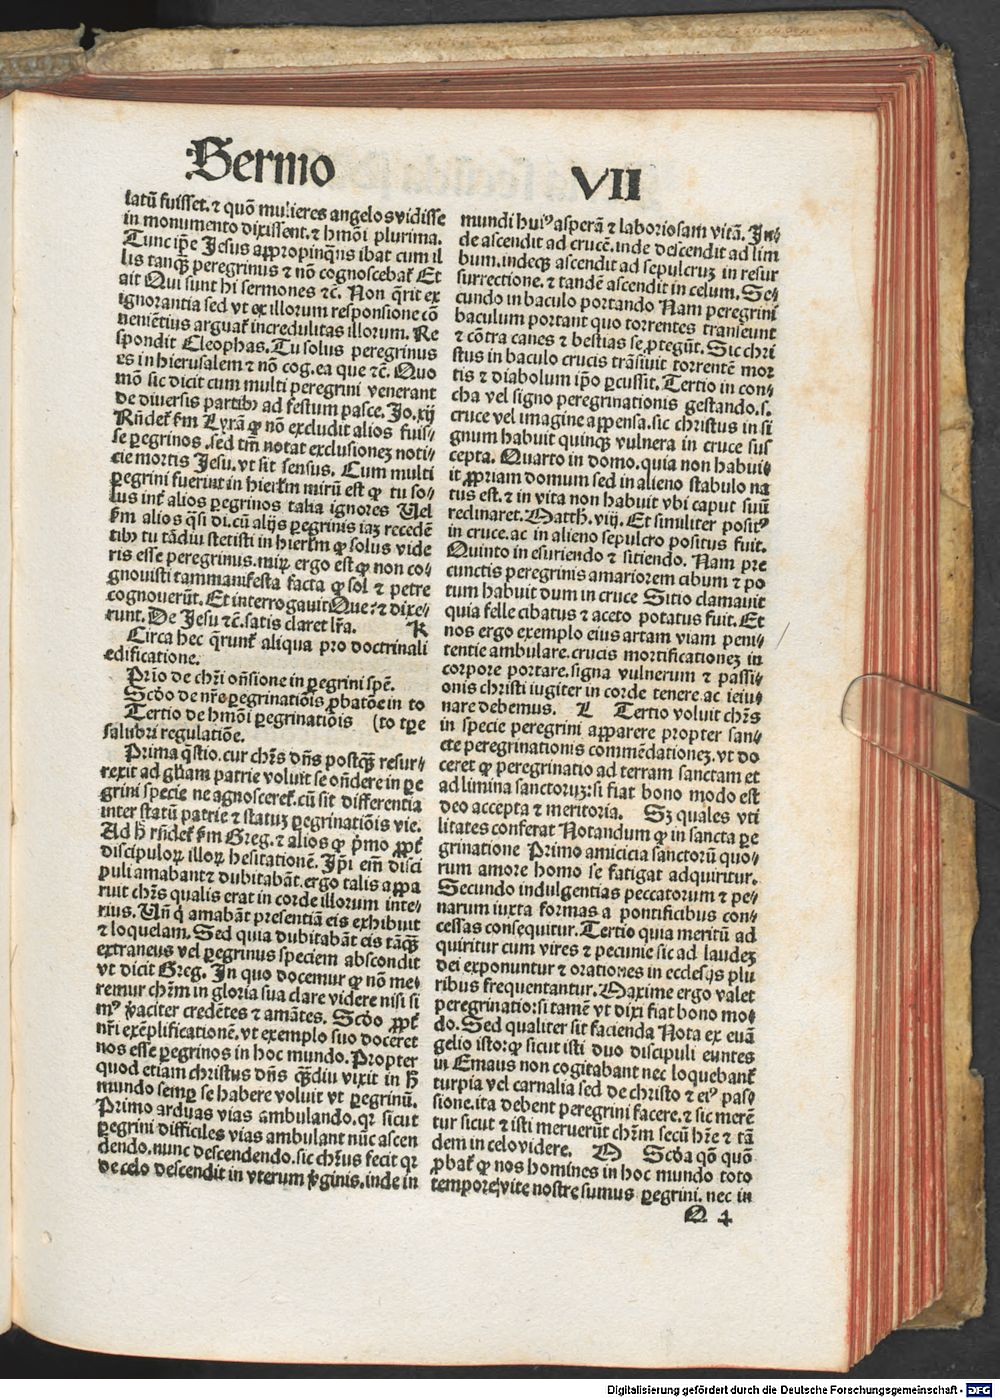 Sermo VII
latũ fuisset. ⁊ quõ mulieres angelos vidisse
in monumento dixissent. ⁊ hmõi plurima.
Tunc ip̄e Jesus appropinq̃ns ibat cum il
lis tanq̃ꝫ peregrinus ⁊ nõ cognoscebat̃ Et
ait Qui sunt hi sermones ⁊c̃. Non q̃rit ex
ignorantia sed vt ex illorum responsione cõ
veniẽtius arguat̃ incredulitas illorum. Re
spondit Cleophas. Tu solus peregrinus
es in hierusalem ⁊ nõ cog. ea que ⁊c̃. Quo
mõ sic dicit cum multi peregrini venerant
de diversis partibꝰ ad festum pasce. Jo. xij
Rñdet̃ s̃m Lyrã ꝙ nõ excludit alios fuis⸗
se ꝑegrinos. sed tm̃ notat exclusionez noti⸗
cie mortis Jesu. vt sit sensus. Cum multi
ꝑegrini fuerint in hierl̃m mirũ est ꝙ tu so⸗
lus int̃ alios ꝑegrinos talia ignores Uel
s̃m alios q̃si di. cũ alijs ꝑegrinis iaꝫ recedẽ
tibꝰ tu tãdiu stetisti in hierl̃m ꝙ solus vide
ris esse peregrinus. mirũ ergo est ꝙ non co⸗
gnouisti tam manifesta facta ꝙ sol ⁊ petre
cognouerũt. Et interrogauit Que? ⁊ dixe⸗
runt. De Jesu ⁊c̃. satis claret lr̃a. K
Circa hec q̃runt̃ aliqua pro doctrinali
edificatione.
Prĩo de chr̃i oñsione in ꝑegrini sp̃e.
Scd̃o de nr̃e ꝑegrinatiõis ꝓbatõe in to
Tertio de hmõi ꝑegrinatiõis (to tp̃e
salubri regulatiõe.
Prima q̃stio. cur chr̃s dñs postq̃ꝫ resur⸗
rexit ad gl̃iam patrie voluit se oñdere in ꝑe
grini specie ne agnosceret̃. cũ sit differentia
inter statũ patrie ⁊ statuꝫ ꝑegrinatiõis vie.
Ad h̃ rñdet̃ s̃m Greg. ⁊ alios ꝙ p̃mo ꝓpt̃
discipuloꝝ illoꝝ hesitationẽ. Ip̃i em̃ disci
puli amabant ⁊ dubitabãt. ergo talis appa
ruit chr̃s qualis erat in corde illorum inte⸗
rius. Uñ q̃ amabãt presentiã eis exhibuit
⁊ loquelam. Sed quia dubitabãt eis tãq̃ꝫ
extraneus vel ꝑegrinus speciem abscondit
vt dicit Greg. In quo docemur ꝙ nõ me⸗
remur chr̃m in gloria sua clare videre nisi si
mꝰ ṽaciter credẽtes ⁊ amãtes. Scd̃o ꝓpt̃
nr̃i exẽplificationẽ. vt exemplo suo doceret
nos esse ꝑegrinos in hoc mundo. Propter
quod etiam christus dñs q̃ꝫdiu vixit in h̃
mundo semꝑ se habere voluit vt ꝑegrinũ.
Primo arduas vias ambulando. qꝛ sicut
ꝑegrini difficiles vias ambulant nũc ascen
dendo. nunc descendendo. sic chr̃us fecit qꝛ
de celo descendit in vterum ṽginis. inde in
mundi huiꝰ asperã ⁊ laboriosam vitã. In⸗
de ascendit ad crucẽ. inde descendit ad lim
bum. indeqꝫ ascendit ad sepulcruꝫ in resur
surrectione. ⁊ tandẽ ascendit in celum. Se⸗
cundo in baculo portando Nam peregrini
baculum portant quo torrentes transeunt
⁊ cõtra canes ⁊ bestias se ꝓtegũt. Sic chri
stus in baculo crucis trãsiuit torrentẽ mor
tis ⁊ diabolum ip̃o ꝑcussit. Tertio in con⸗
cha vel signo peregrinationis gestando. s.
cruce vel imagine appensa. sic christus in si
gnum habuit quinqꝫ vulnera in cruce sus
cepta. Quarto in domo. quia non habui⸗
it ꝓpriam domum sed in alieno stabulo na
tus est. ⁊ in vita non habuit vbi caput suũ
reclinaret. Matth. viij. Et similiter positꝰ
in cruce. ac in alieno sepulcro positus fuit.
Quinto in esuriendo ⁊ sitiendo. Nam pre
cunctis peregrinis amariorem cibum ⁊ po
tum habuit dum in cruce Sitio clamauit
quia felle cibatus ⁊ aceto potatus fuit. Et
nos ergo exemplo eius artam viam peni⸗
tentie ambulare. crucis mortificationeꝫ in
corpore portare. signa vulnerum ⁊ passi⸗
onis christi iugiter in corde tenere. ac ieiu⸗
nare debemus. L Tertio voluit chr̃s
in specie peregrini apparere propter san⸗
cte peregrinationis commẽdationeꝫ. vt do
ceret ꝙ peregrinatio ad terram sanctam et
ad limina sanctoruꝫ: si fiat bono modo est
deo accepta ⁊ meritoria. Sꝫ quales vti
litates conferat Notandum ꝙ in sancta ꝑe
grinatione Primo amicicia sanctorũ quo⸗
rum amore homo se fatigat adquiritur.
Secundo indulgentias peccatorum ⁊ pe⸗
narum iuxta formas a pontificibus con⸗
cessas consequitur. Tertio quia meritũ ad
quiritur cum vires ⁊ pecunie sic ad laudeꝫ
dei exponuntur ⁊ orationes in ecclesijs plu
ribus frequentantur. Maxime ergo valet
peregrinatio: si tamẽ vt dixi fiat bono mo⸗
do. Sed qualiter sit facienda Nota ex euã
gelio isto: ꝙ sicut isti duo discipuli euntes
in Emaus non cogitabant nec loquebant̃
turpia vel carnalia sed de christo ⁊ eiꝰ pas⸗
sione. ita debent peregrini facere. ⁊ sic merẽ
tur sicut ⁊ isti meruerũt chr̃m secũ hr̃e ⁊ tã
dem in celo videre. M Scd̃a qõ quõ
ꝓbat̃ ꝙ nos homines in hoc mundo toto
tempore vite nostre sumus ꝑegrini. nec in
Q 4
Digitalisierung gefördert durch die Deutsche Forschungsgemeinschaft - DFG